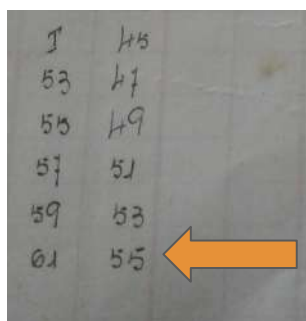 I 45
53 47
55 49
57 51
59 53
61 55